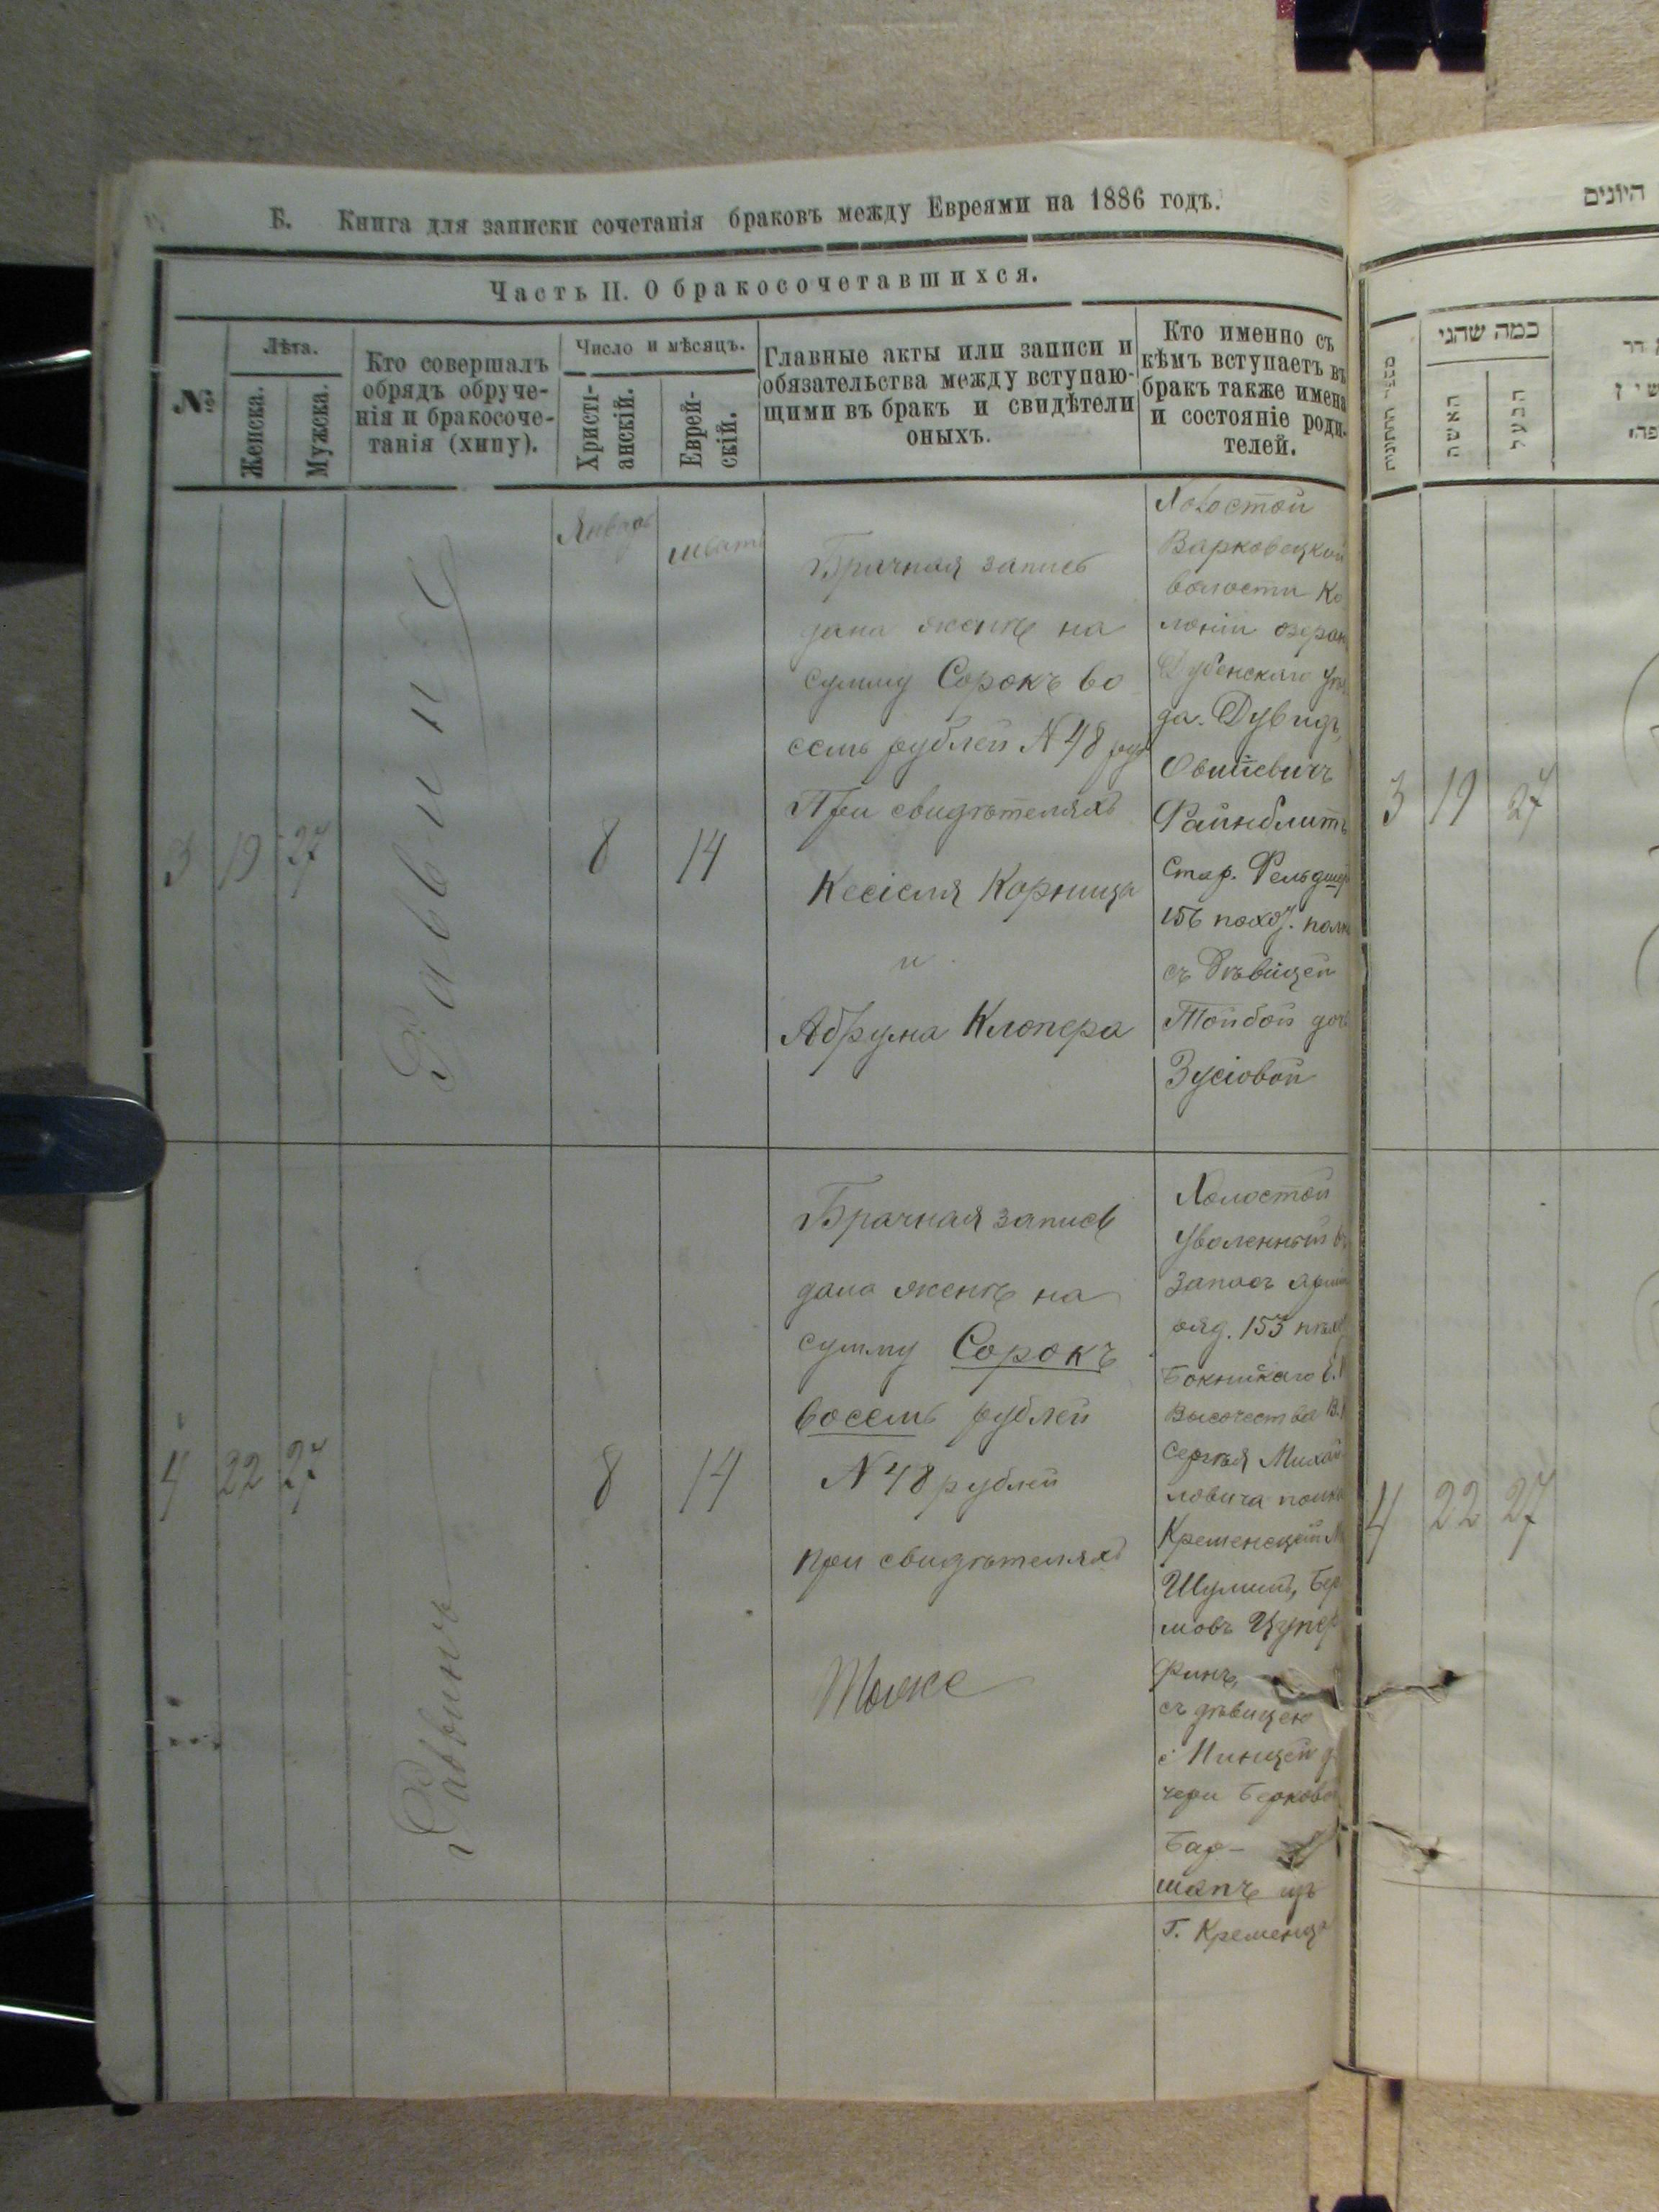 Б. Книга для записки сочетанія браковъ между Евреями на 1886 годъ.
Часть II. О бракосочетавшихся.
№
Лѣта.
Женска.
Мужска.
Кто совершалъ
обрядъ обруче-
нія и бракосоче-
танія (хипу).
Число и мѣсяцъ.
Христі-
анскій.
Еврей-
скій.
Главные акты или записи и
обязательства между вступаю-
щими въ бракъ и свидѣтели
оныхъ.
Кто именно съ
кѣмъ вступаетъ въ
бракъ также имена
и состояніе роди-
телей.
3
19
27
Раввинъ
Январь
8
Шватъ
14
Брачная запись
дана женѣ на
сумму Сорокъ во
семь рублей N 48 руб
При свидѣтеляхъ
Кесіеля Корница
и
Абрума Клопера
Холостой
Варковецкой
волости Ко
лоніи Озеран
Дубенскаго уѣз
да. Дувидъ
Овшіевичъ
Файнблитъ
Стар. Фельдшер
156 полк
съ Дѣвицей
Тойбой доч
Зусіовой
4
22
27
Раввинъ
8
14
Брачная запись
дана женѣ на
сумму Сорокъ
восемь рублей
N 48 рублей
при свидѣтеляхъ
Тоже
Холостой
Уволенный въ
Запасъ Арміи
ряд. 153 пѣхот
Бакинскаго Е. И
Высочества В. К
Сергѣя Михай
ловича полка
Кременецкій М
Шулимъ, Бер
ковъ Цупер
финъ,
съ дѣвицею
Минцей до
чери Берковой
Бар-
шапъ изъ
Г. Кременца
היונים
כמה שהני
האשה
הבעל
3
19
27
4
22
27